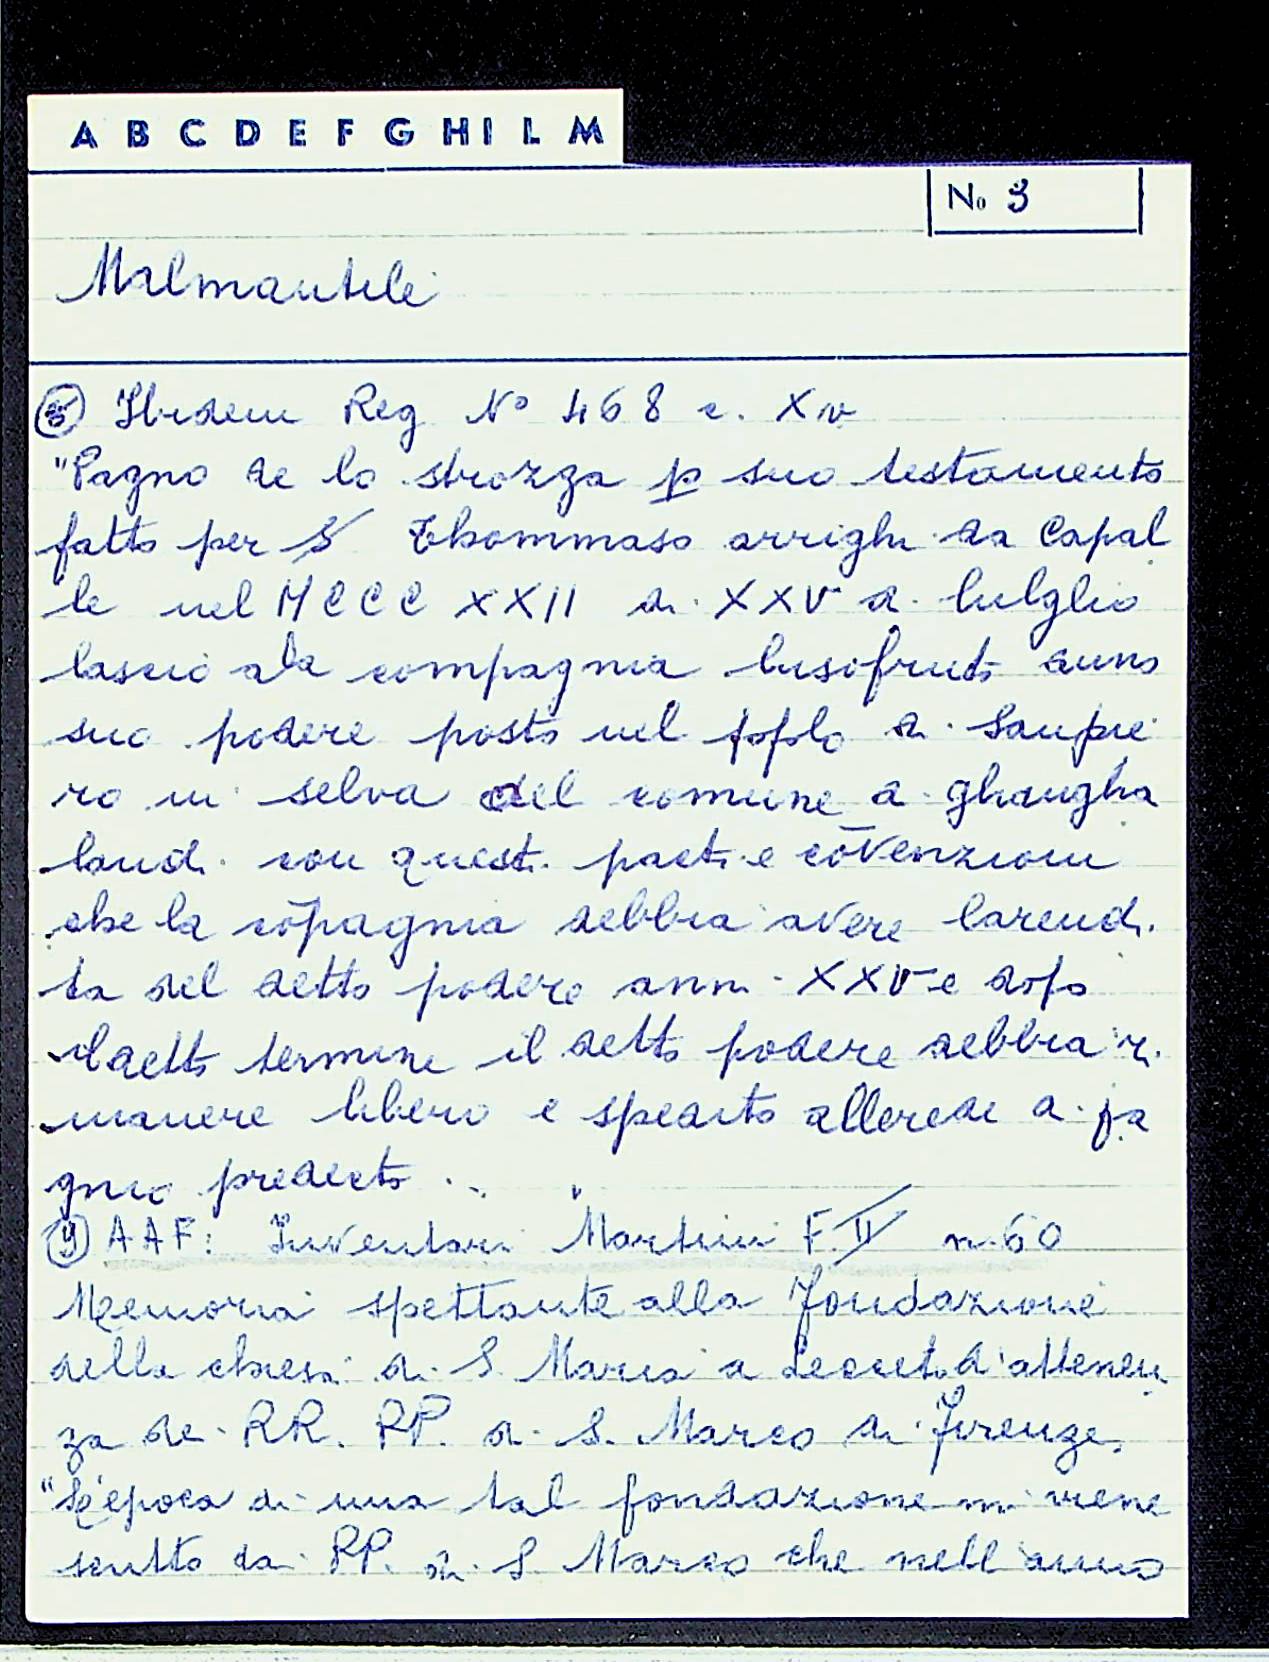 A B C D E F G H I L M
No 3
Malmantile
③ Ibidem Reg N° 468 c. XIV
"Pagno de lo strozza p suo testamento
fatto per S Thommaso arrighi da Capal
le nel MCCCXXII di XXV di lulglio
lascio ala compagnia lusofrutto duno
suo podere posto nel popolo di Sanpie
ro in selva del comune di ghangha
landi con questi pacti e cōvenzioni
che la cōpagnia debbia avere larendi
ta del detto podere anni XXV e dopo
ildetto termine il detto podere debbia ri
manere libero e spedito allerede di pa
gnio predecto ..."
AAF: Inventari Martini F. II n. 60
Memoria spettante alla Fondazione
della chiesa di S. Maria a Lecceto d'atteneu
za de RR. PP. di S. Marco di Firenze.
"L'epoca di una tal fondazione mi viene
scritto da PP. di S. Marco che nell'anno